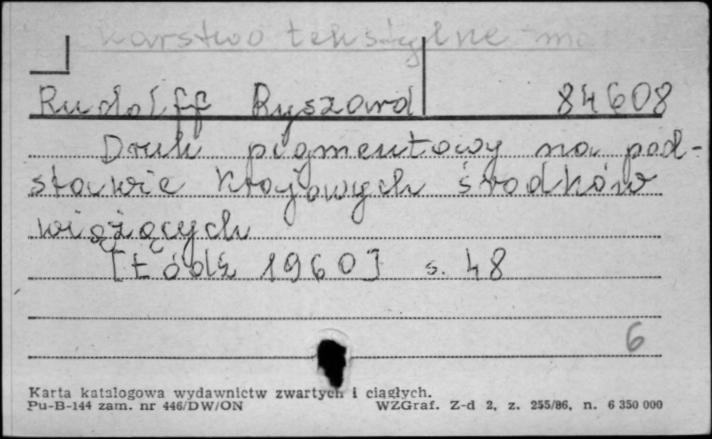 karstwo tekstylne
Rudolff Ryszard 84608
Druk pigmentowy na pod-
stawie krajowych środków
wiążących
[Łódź 1960] s. 48
6
Karta katalogowa wydawnictw zwartych i ciągłych.
Pu-B-144 zam. nr 446/DW/ON WZGraf. Z-d 2, z. 255/86, n. 6 350 000